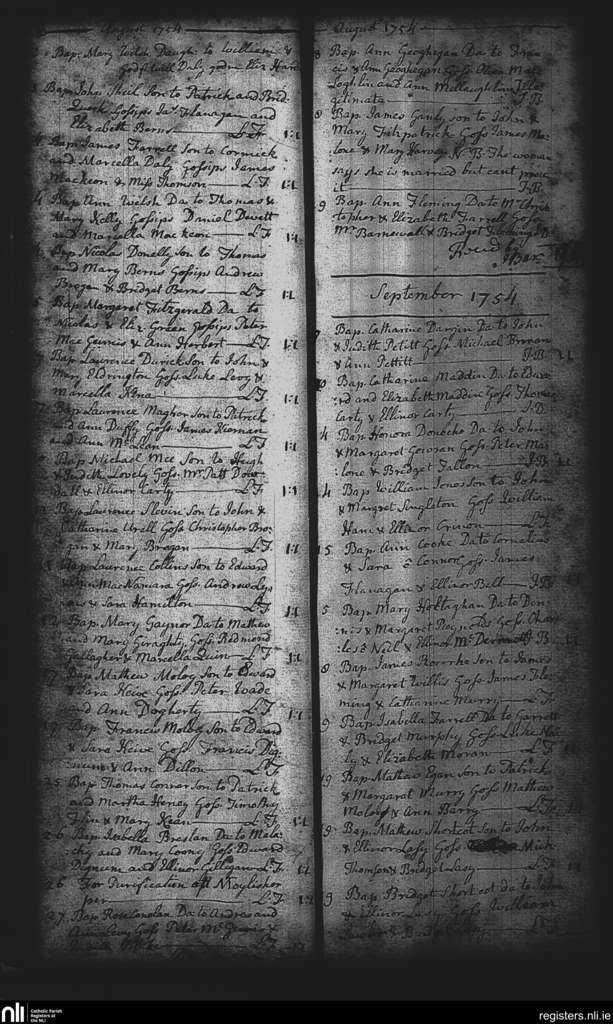 August 1754
Bap: Mary Welsh Daugh: to William &
Bap: John Sheil Son to Patrick and Brid
Quirk Gossips Jas Flanagan and
Elizabeth Berns L:F
Bap: James Farrell Son to Cormick
and Marcella Daly Gossips James
Mackeon & Miss Thomson L:F
Bap: Ann Welsh Da: to Thomas &
Mary Kelly Gossips Daniel Dwett
and Marcella Mackeon L:F
Bap: Nicolas Donelly Son to Thomas
and Mary Berns Gossips Andrew
Brogan & Bridget Berns L:F
Bap: Margaret Fitzgerald Da: to
Nicolas & Eliz: Green Gossips Peter
Mac Gennis & Ann Herbert L:F
Bap: Laurence Durick Son to John &
Mary Eldrington Goss: Luke Levy &
Marcella Kina L:F
Bap: Laurence Magher Son to Patrick
and Ann Duffy Goss: James Kiernan
and Ann Mc L:F
Bap: Michael Mee Son to Heigh
& Judith Lovely Goss: Mr Patt Dow
dall & Ellinor Carty L:F
Bap: Laurence Slevin Son to John &
Catharine Urell Goss: Christopher Bro
gan & Mary Brogan L:F
Bap: Laurence Collins Son to Edward
& Ann MacNamara Goss: Andrew
& Sara Hamilton L:F
Bap: Mary Gaynor Da: to Mathew
and Mary Giraghty Goss: Redmond
Gallagher & Marcella Quin L:F
Bap: Mathew Moloy Son to Edward
& Sara Keive Goss: Peter Wade
and Ann Dogherty L:F
Bap: Francis Moloy Son to Edward
& Sara Keive Goss: Francis Dig
num & Ann Dillon L:F
25 Bap: Thomas Connor Son to Patrick
and Martha Heney Goss: Timothy
Flin & Mary Kean L:F
26 Bap: Isabella Breslan Da: to Mala
chy and Mary Coony Goss: Edward
Dignum and Ellinor Gillawn L:F
26 For Purification att Moylisker
per L:F
27 Bap: Rose Conolan Da: to Andrew and
Ann Levy Goss: Peter Mc
August 1754
8 Bap: Ann Geoghegan Da: to Fran
cis & Ann Geoghegan Goss: Owen Mac
Loghlin and Ann McLaughlin Ille
getimate J:B
8 Bap: James Ganly Son to John &
Mary Fitzpatrick Goss: James Ma
lone & Mary Harvey N:B The woman
says she is married but cant prove
it J:B
9 Bap: Ann Fleming Da: to Mr Chris
topher & Elizabeth Farrell Goss:
Mr Barnewall & Bridget Fleming J:B
September 1754
Bap: Catharine Dargin Da: to John
& Judith Petitt Goss: Michael Brenan
& Ann Pettitt J:B
Bap: Catharine Maddin Da: to Edwa
rd and Elizabeth Maddin Goss: Thomas
Carty & Ellinor Carty J:B
4 Bap: Honora Donocho Da: to John
& Margaret Gowran Goss: Peter Ma
lone & Bridget Fallon J:B
4 Bap: William Jones Son to John
& Margret Singleton Goss: William
Ham & Ellinor L:F
5 Bap: Ann Cooke Da: to Cornelius
& Sara o Connor Goss: James
Flanagan & Ellinor Bell J:B
5 Bap: Mary Da: to Den
nis & Margaret Reynolds Goss: Char
les o Neil & Ellinor Mc Dermott J:B
8 Bap: James Rorrke Son to James
& Margaret Willis Goss: James Fle
ming & Catharine Murry L:F
9 Bap: Isabella Farrell Da: to Garrett
& Bridget Murphy Goss: Luke
ly & Elizabeth Moran L:F
19 Bap: Mathew Egan Son to Patrick
& Margaret Murry Goss: Mathew
Moloy & Ann Barry L:F
19 Bap: Mathew Shortcot Son to John
& Ellinor Lasy Goss: Mich:
Thomson & Bridget Lasy L:F
19 Bap: Bridget Shortcot da: to John
& Ellinor Lasy Goss: William
L:F
nli
Catholic Parish
Registers at
the NLI
registers.nli.ie